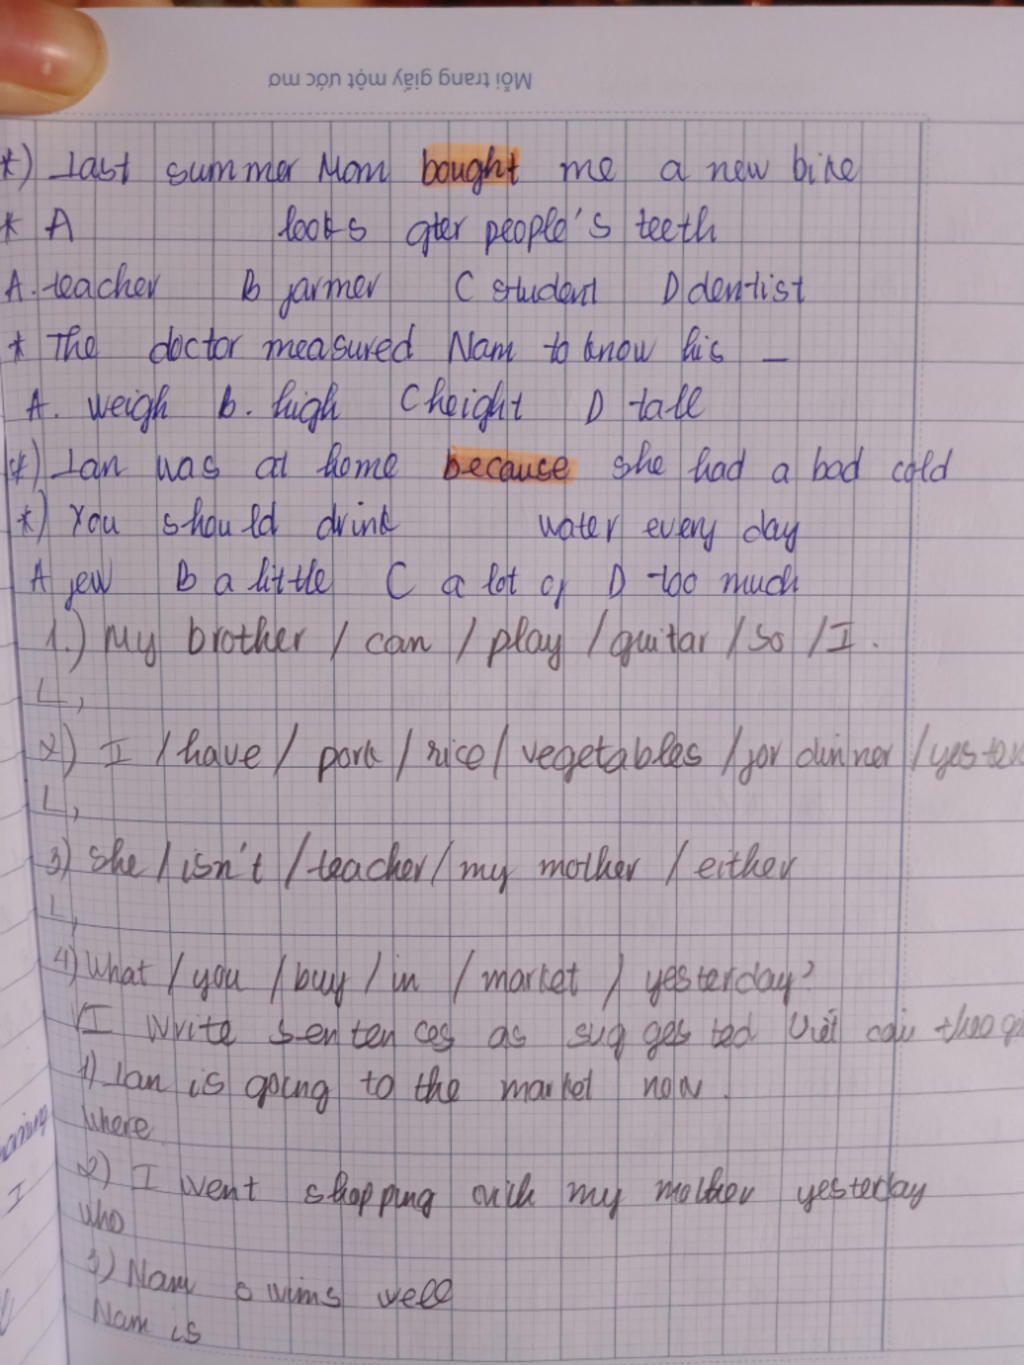 Mỗi trang giấy một ước mơ
*) Last summer Mom bought me a new bike
* A looks after people's teeth
A. teacher B farmer C student D dentist
* The doctor measured Nam to know his _
A. weigh B. high C height D tall
*) Lan was at home because she had a bad cold
*) You should drink water every day
A few B a little C a lot of D too much
1.) My brother / can / play / guitar / so / I.
2) I / have / pork / rice / vegetables / for dinner /
3) She / isn't / teacher / my mother / either
4) What / you / buy / in / market / yesterday?
VI Write sentences as suggested Viết câu theo
1) Lan is going to the market now.
Where
2) I went shopping with my mother yesterday
Who
3) Nam swims well
Nam is